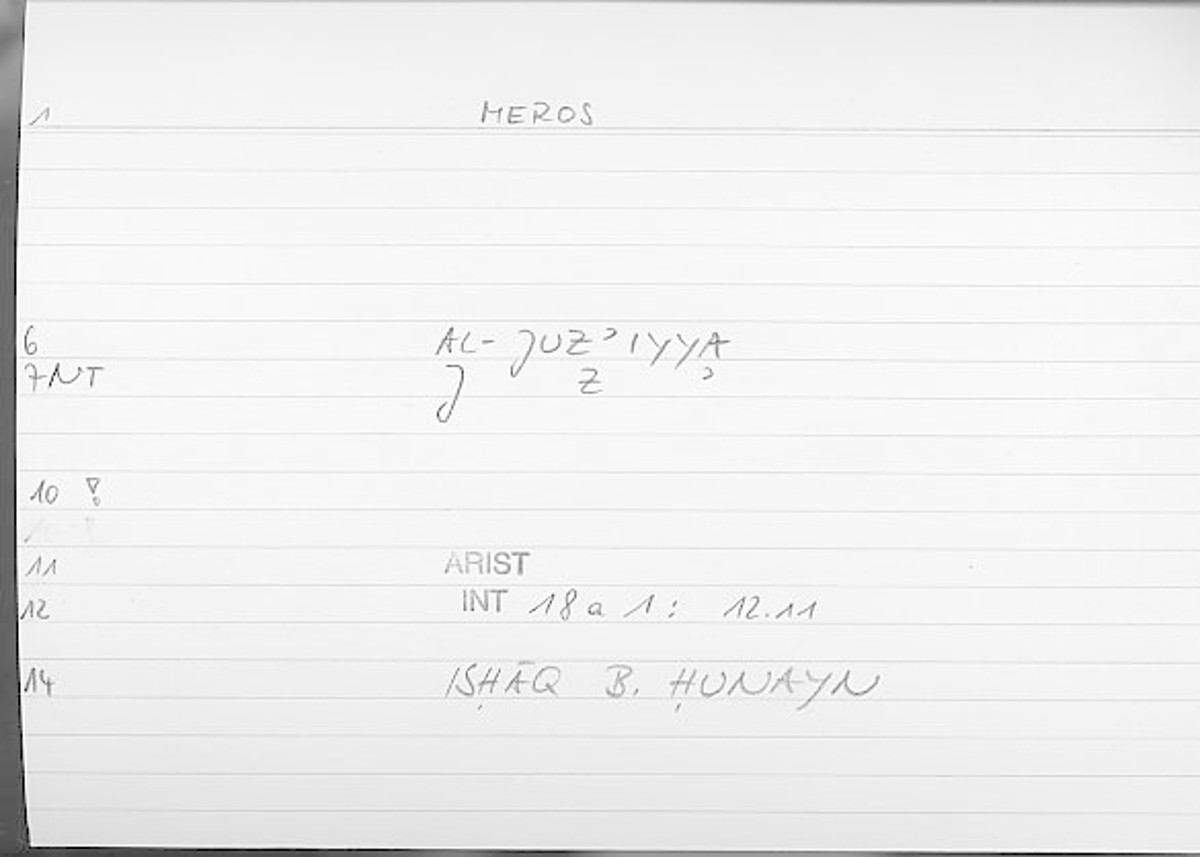 1 MEROS
6 AL-JUZʾIYYA
7NT J Z ʾ
10 !
11 ARIST
12 INT 18a 1: 12.11
14 ISḤĀQ B. ḤUNAYN